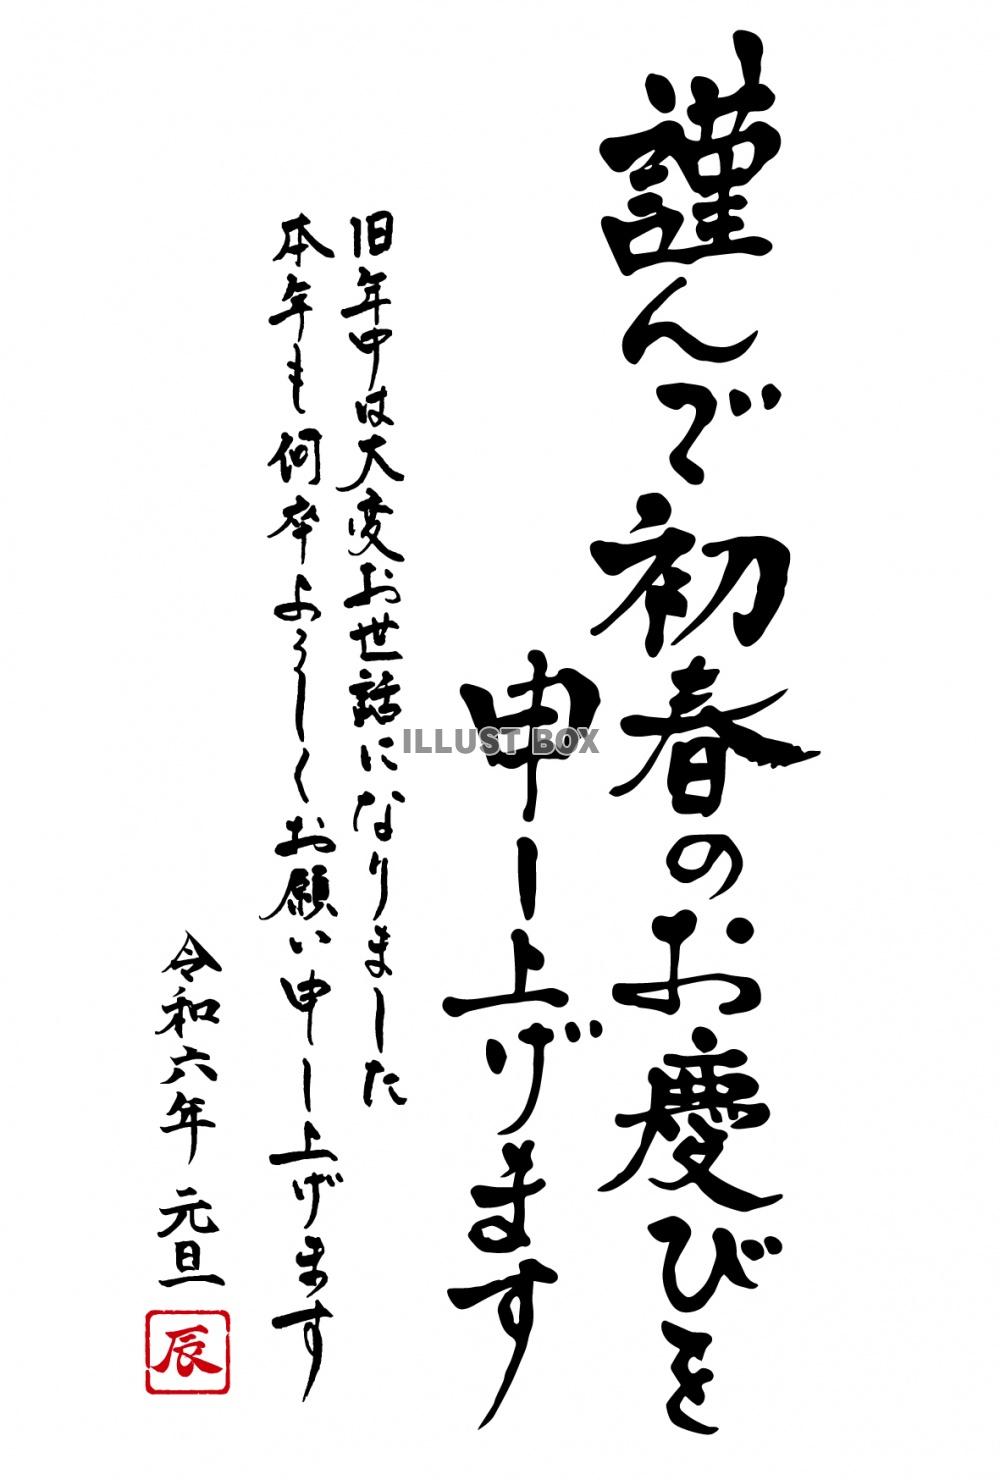 謹んで初春のお慶びを
申し上げます
旧年中は大変お世話になりました
本年も何卒よろしくお願い申し上げます
令和六年 元旦
辰
ILLUST BOX